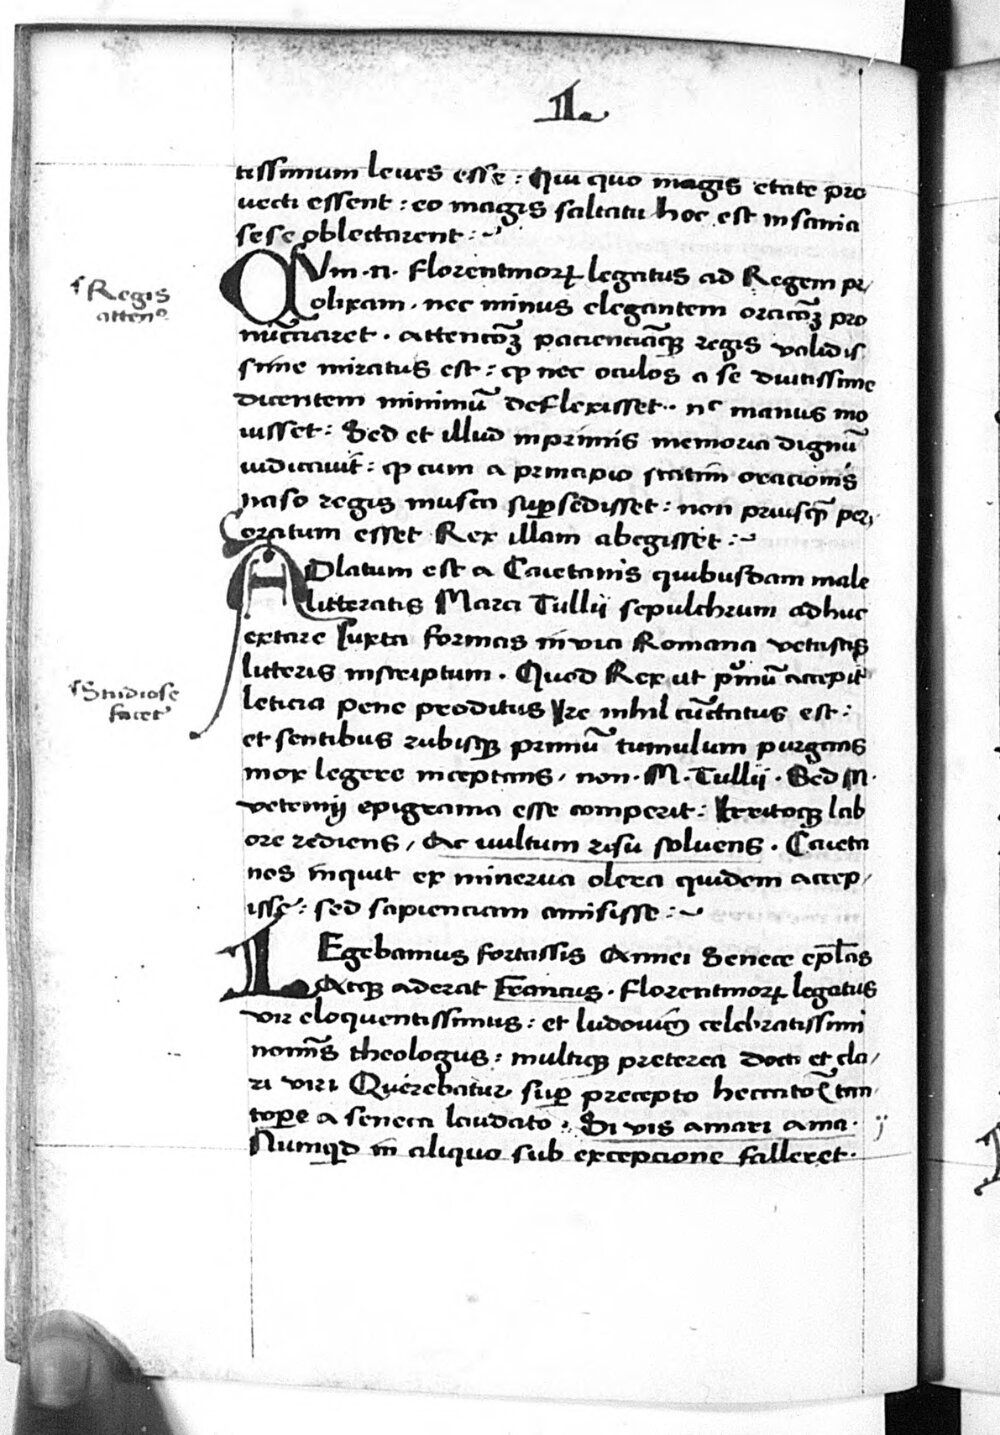 1.
tissimum leues esse : Qui quo magis etate pro
uecti essent : eo magis saltatu hoc est insania
sese oblectarent :~
QVm · n · florentinoꝝ legatus ad Regem pr/
olixam · nec minus elegantem oracōꝫ pro
nūciaret · attencōꝫ pacienciāqꝫ regis validis
sime miratus est : ꝙ nec oculos a se diutissime
dicentem minimū deflexisset ·· nᶜ manus mo
uisset : Sed et illud inprimis memoria dignū
iudicauit : ꝙ cum a principio statim oracionis
naso regis musca suꝑsedisset : non priusꝙ̄ per/
oratum esset Rex illam abegisset :~
ſ Regis
attenᵒ
ADlatum est a Caietanis quibusdam male
litteratis Marci Tullij sepulchrum adhuc
extare Iuxta formas in via Romana vetustis
litteris inscriptum · Quod Rex ut pͥmū accepit
leticia pene proditus Ire nihil cūctatus est :
et sentibus rubisqꝫ primū tumulum purgans
mox legere inceptans / non · M · Tullij · Sed M ·
vetemij epigrama esse comperit : Irritoqꝫ lab
ore rediens / Ac vultum risu soluens · Caieta
nos inquit ex minerua olera quidem accep/
isse : sed sapienciam amisisse :~
ſ Studiose
facetᵗ
LEgebamus fortassis Annei Senece epl̄as
Atqꝫ aderat Francius · florentinoꝝ legatus
vir eloquentissimus : et ludouicꝰ celebratissimi
nominis theologus : multiqꝫ preterea docti et cla/
ri viri Querebatur suꝑ precepto heccato tan
toꝑe a seneca laudato · Si vis amari ama · ij
Numqͥd in aliquo sub excepcione falleret ·